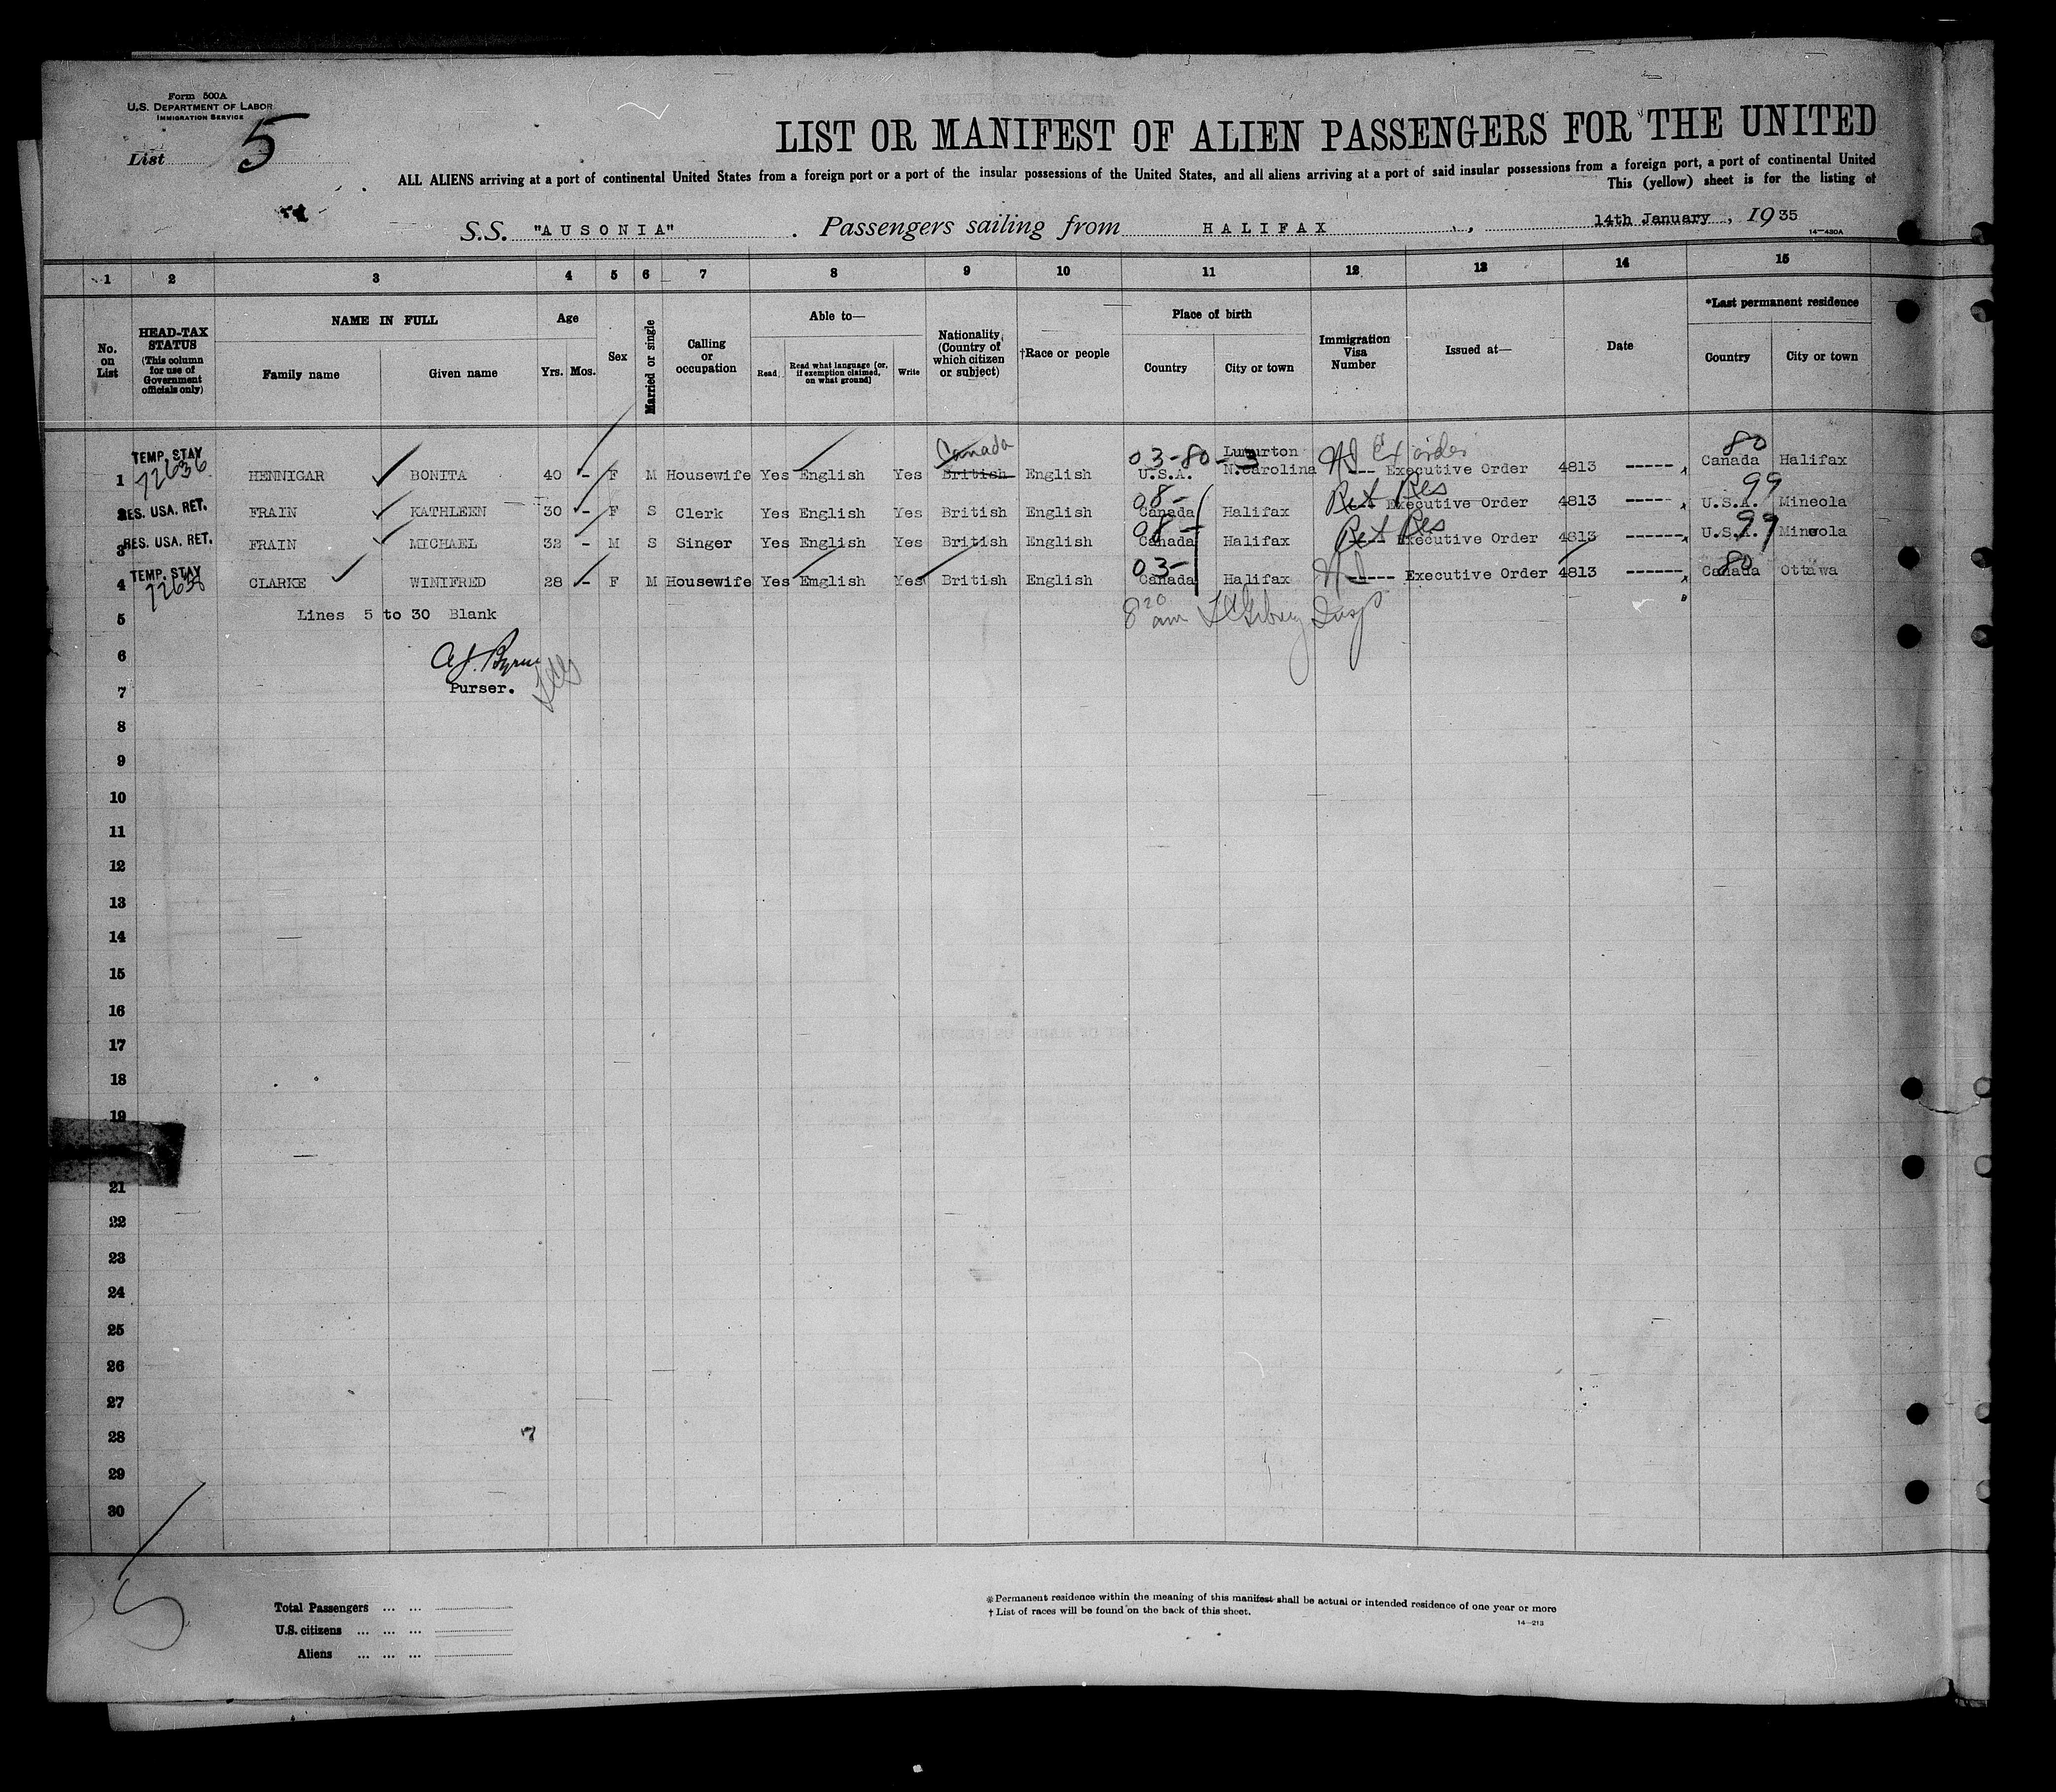 Form 500A
U.S. DEPARTMENT OF LABOR
IMMIGRATION SERVICE
List 5
LIST OR MANIFEST OF ALIEN PASSENGERS FOR THE UNITED
ALL ALIENS arriving at a port of continental United States from a foreign port or a port of the insular possessions of the United States, and all aliens arriving at a port of said insular possessions from a foreign port, a port of continental United
This (yellow) sheet is for the listing of
S.S. "AUSONIA" . Passengers sailing from HALIFAX , 14th January , 1935
14—480A
1 2 3 4 5 6 7 8 9 10 11 12 13 14 15
No. on List
HEAD-TAX STATUS (This column for use of Government officials only)
NAME IN FULL
Family name Given name
Age
Yrs. Mos.
Sex
Married or single
Calling or occupation
Able to—
Read Read what language [or, if exemption claimed, on what ground] Write
Nationality. (Country of which citizen or subject)
†Race or people
Place of birth
Country City or town
Immigration Visa Number
Issued at—
Date
*Last permanent residence
Country City or town
Canada 03-80-3 Lumurton Ex order 80
1 TEMP. STAY 72636 HENNIGAR BONITA 40 - F M Housewife Yes English Yes British English U.S.A. N.Carolina ---- Executive Order 4813 ----- Canada Halifax
08- Ret Res 99
2 RES. USA. RET. FRAIN KATHLEEN 30 - F S Clerk Yes English Yes British English Canada Halifax Executive Order 4813 ----- U.S.A. Mineola
08- Ret Res 99
3 RES. USA. RET. FRAIN MICHAEL 32 - M S Singer Yes English Yes British English Canada Halifax Executive Order 4813 ------ U.S.A. Mineola
03- 80
4 TEMP. STAY FRAIN CLARKE WINIFRED 28 - F M Housewife Yes English Yes British English Canada Halifax ----- Executive Order 4813 ------ Canada Ottawa
5 Lines 5 to 30 Blank 8 20 am
6 A J. Byrne
7 Purser.
8
9
10
11
12
13
14
15
16
17
18
19
21
22
23
24
25
26
27
28
29
30
Total Passengers ... ...
U.S. citizens ... ... ...
Aliens ... ... ...
*Permanent residence within the meaning of this manifest shall be actual or intended residence of one year or more
†List of races will be found on the back of this sheet.
14—213